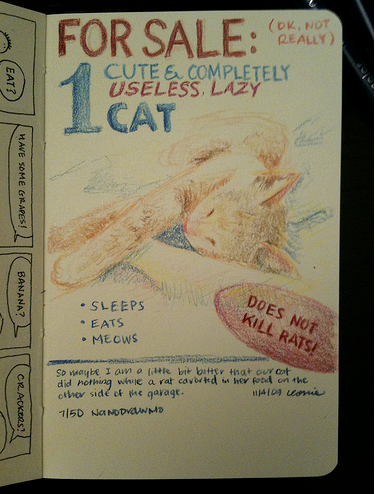 FOR SALE:
(OK, NOT
REALLY)
1
CUTE & COMPLETELY
USELESS, LAZY
CAT
• SLEEPS
• EATS
• MEOWS
DOES NOT
KILL RATS!
So maybe I am a little bit bitter that our cat
did nothing while a rat cavorted in her food on the
other side of the garage.
11/4/09
7/50 NaNoDrawMo
EAT?
HAVE SOME GRAPES!
BANANA?
CRACKERS?